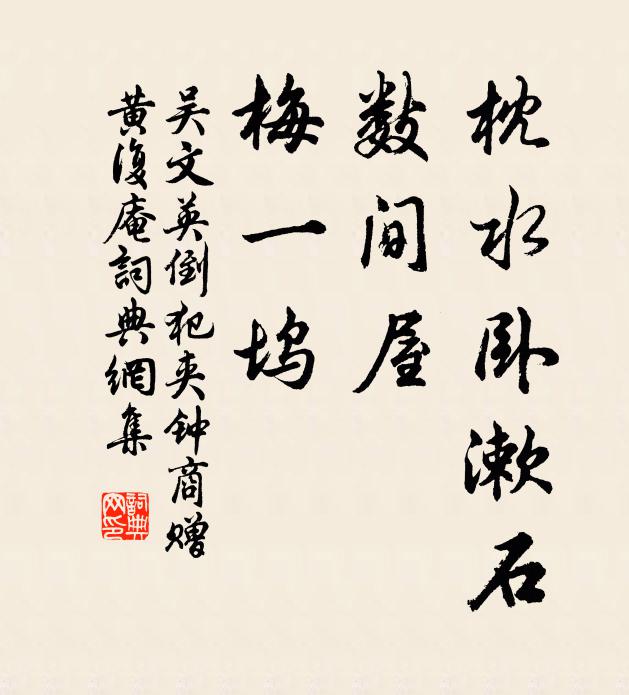 枕水卧漱石
数间屋
梅一坞
吴文英倒犯夹钟商赠
黄復庵詞典網集
詞典
网印